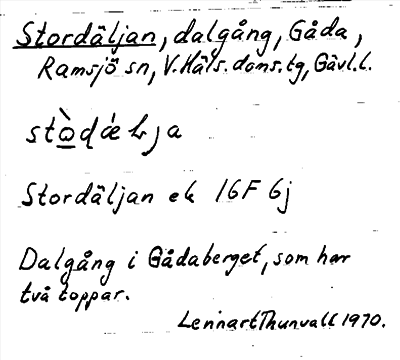 Stordäljan, dalgång, Gåda,
Ramsjö sn, V. Häls. doms. tg, Gävl. l.
Stordäljan ek 16F 6j
Dalgång i Gådaberget, som har
två toppar.
Lennart Thunvall 1970.